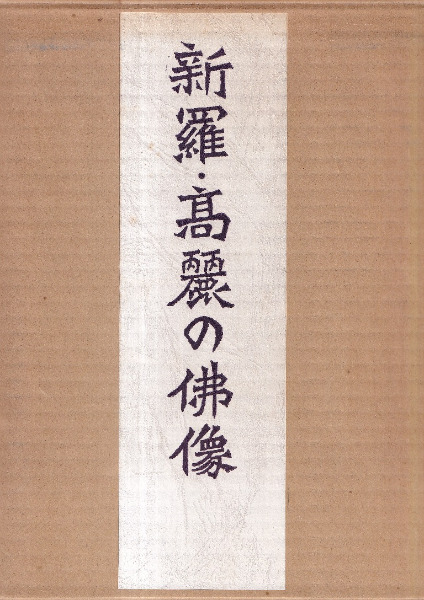 新羅・髙麗の佛像